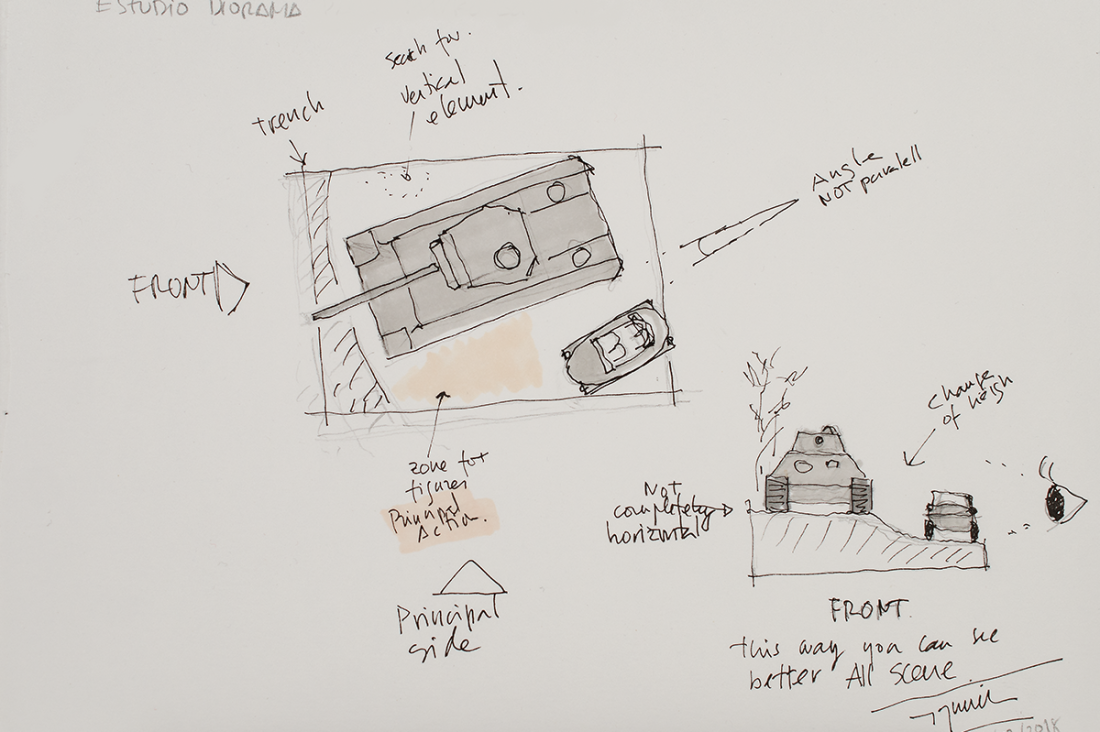 ESTUDIO DIORAMA
search for.
vertical
element.
trench
Angle
NOT paralell
FRONT
change
of heigh
zone for
figures
Principal
Action.
Not
completely
horizontal
Principal
side
FRONT.
this way you can see
better All scene.
2018